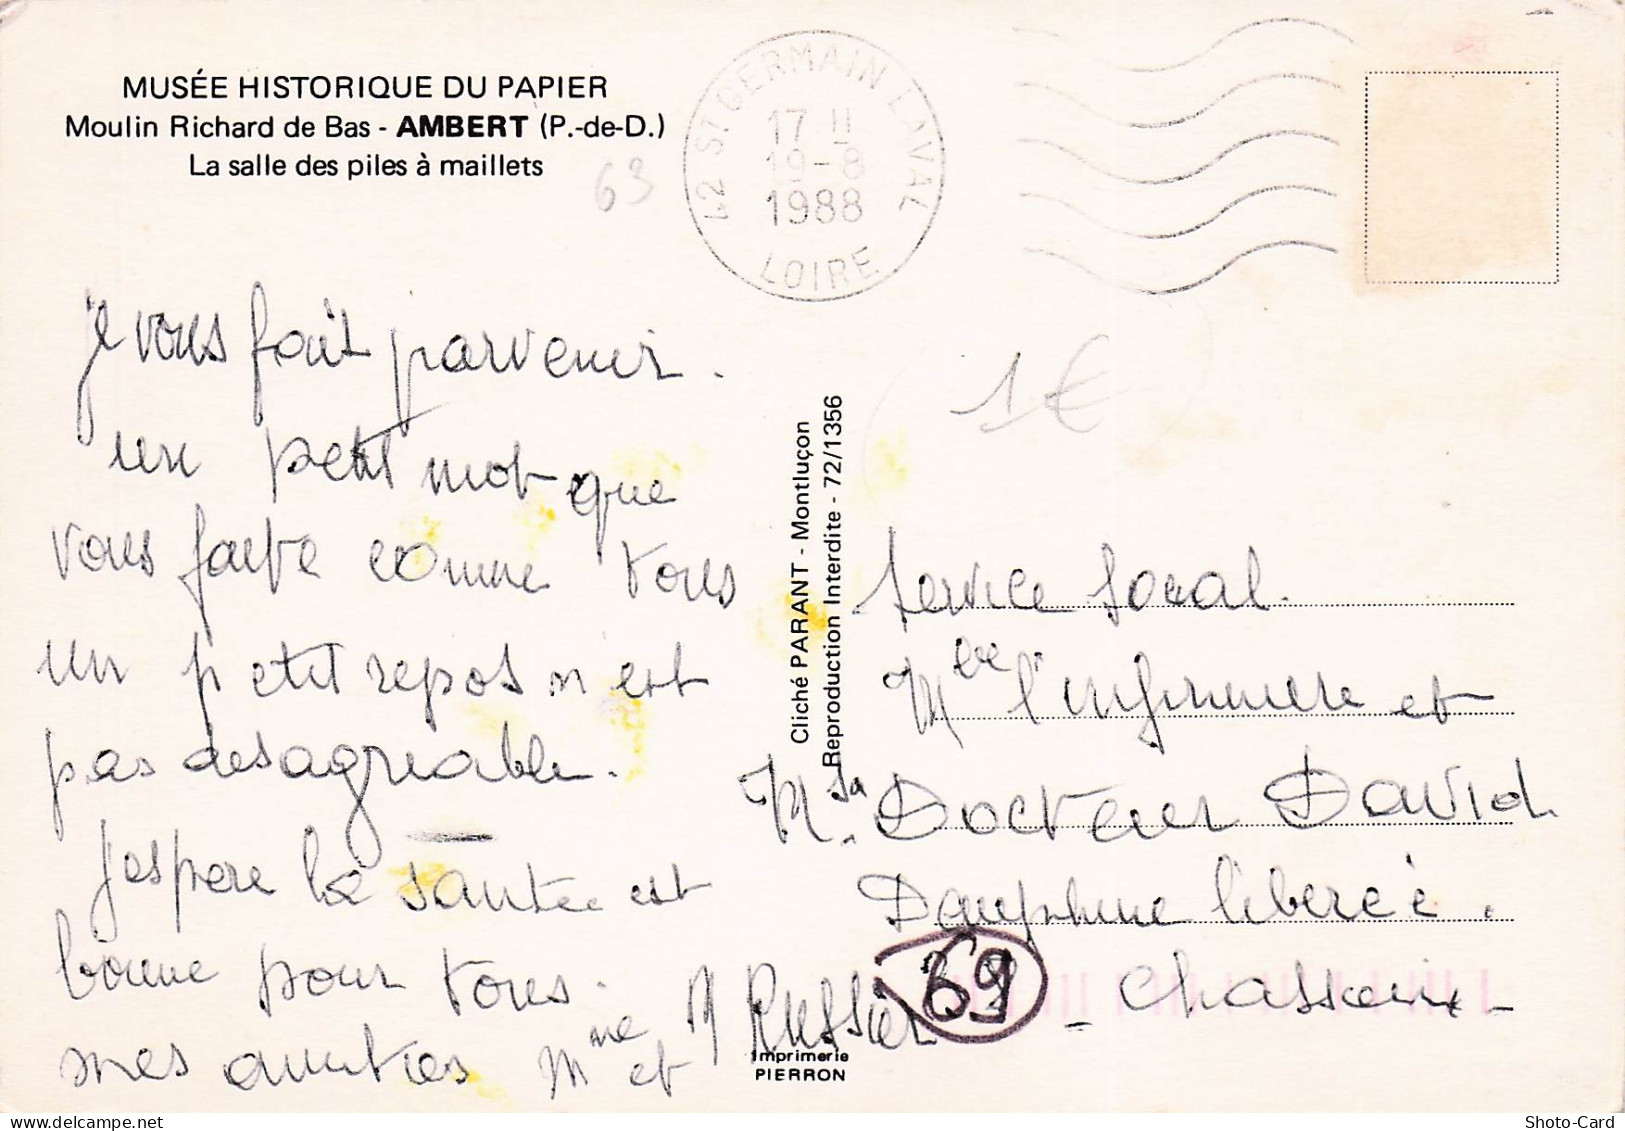 MUSÉE HISTORIQUE DU PAPIER
Moulin Richard de Bas - AMBERT (P.-de-D.)
La salle des piles à maillets
63
42 ST GERMAIN LAVAL
17 II
19-8
1988
LOIRE
1€
je vous fait parvenir.
un petit mot que
vous faite comme tous
un petit repos n est
pas desagreable.
J'espere la santée est
bonne pour tous.
mes amities Mme et M Russier
Cliché PARANT - Montluçon
Reproduction Interdite - 72/1356
Imprimerie
PIERRON
Service Social.
l'infirmiere et
Docteur David
Dauphine libereé.
69 - Chassieux -
Shoto-Card